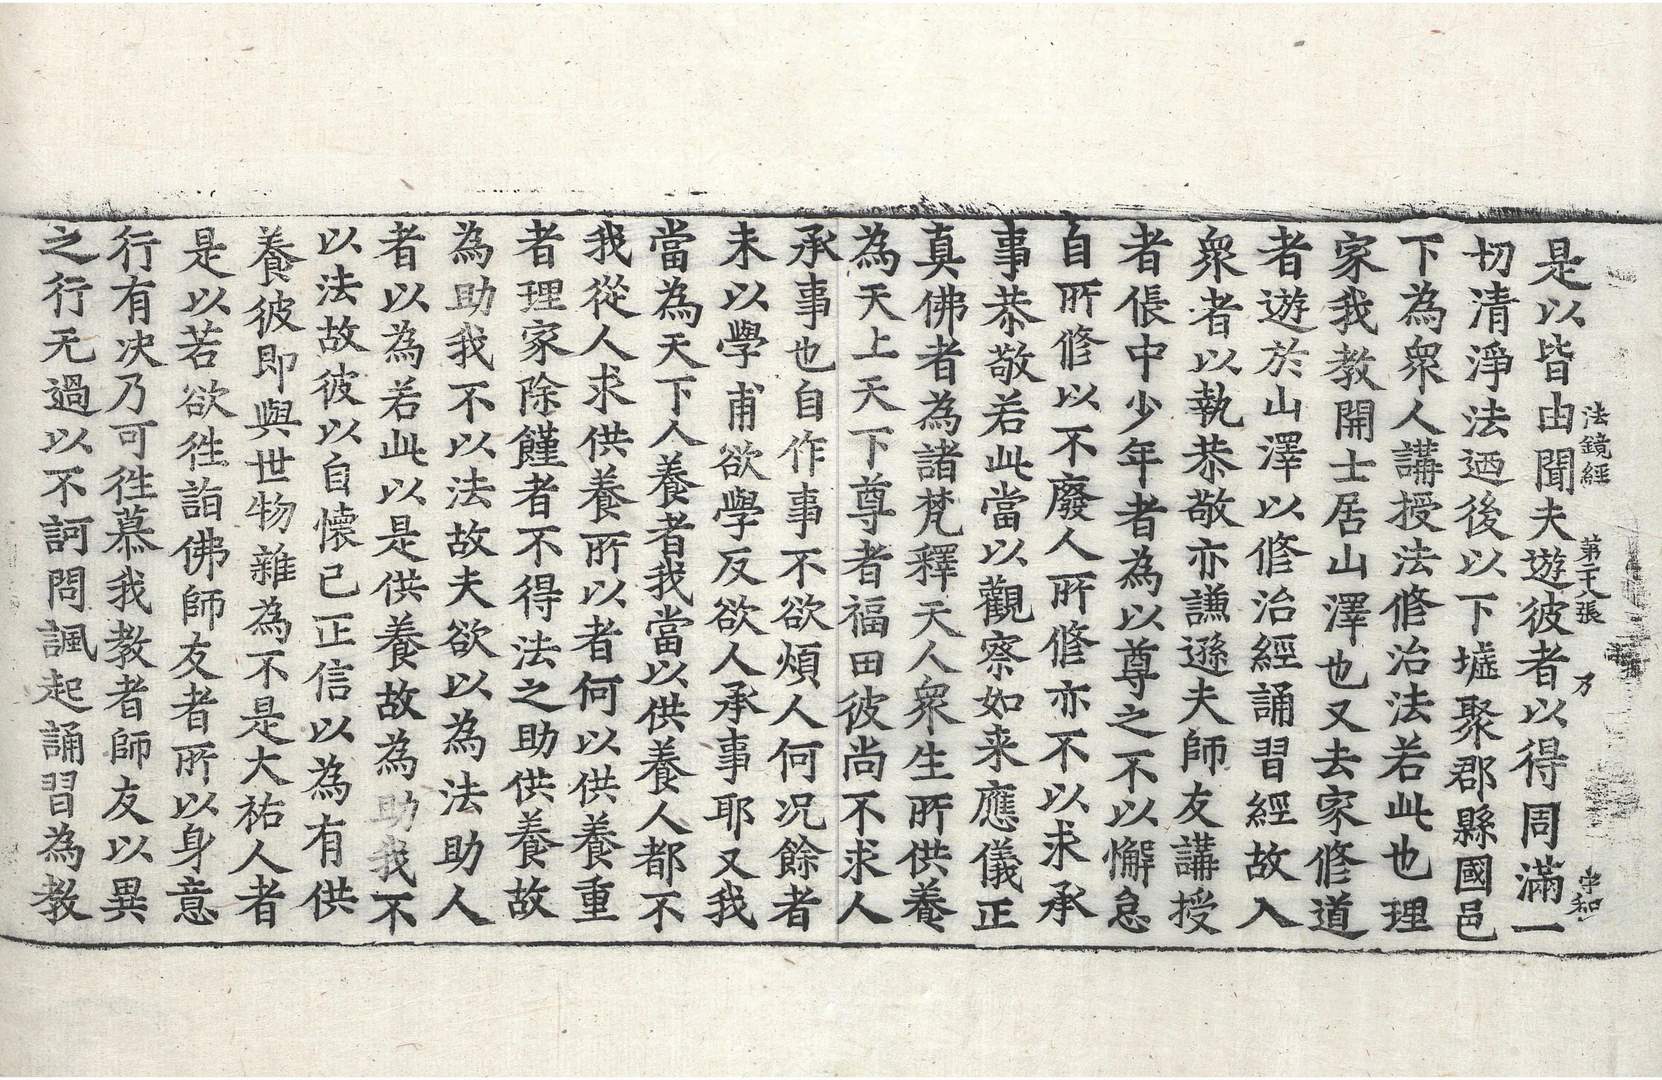 法鏡經　第二十八張　乃　忠和
是以皆由聞夫遊彼者以得周滿一
切清淨法迺後以下墟聚郡縣國邑
下為衆人講授法修治法若此也理
家我教開士居山澤也又去家修道
者遊於山澤以修治經誦習經故入
衆者以執恭敬亦謙遜夫師友講授
者倀中少年者為以尊之不以懈怠
自所修以不廢人所修亦不以求承
事恭敬若此當以觀察如来應儀正
真佛者為諸梵釋天人衆生所供養
為天上天下尊者福田彼尚不求人
承事也自作事不欲煩人何况餘者
未以學甫欲學反欲人承事耶又我
當為天下人養者我當以供養人都不
我從人求供養所以者何以供養重
者理家除饉者不得法之助供養故
為助我不以法故夫欲以為法助人
者以為若此以是供養故為助我不
以法故彼以自懷已正信以為有供
養彼即與世物雜為不是大祐人者
是以若欲徃詣佛師友者所以身意
行有决乃可徃慕我教者師友以異
之行无過以不訶問諷起誦習為教